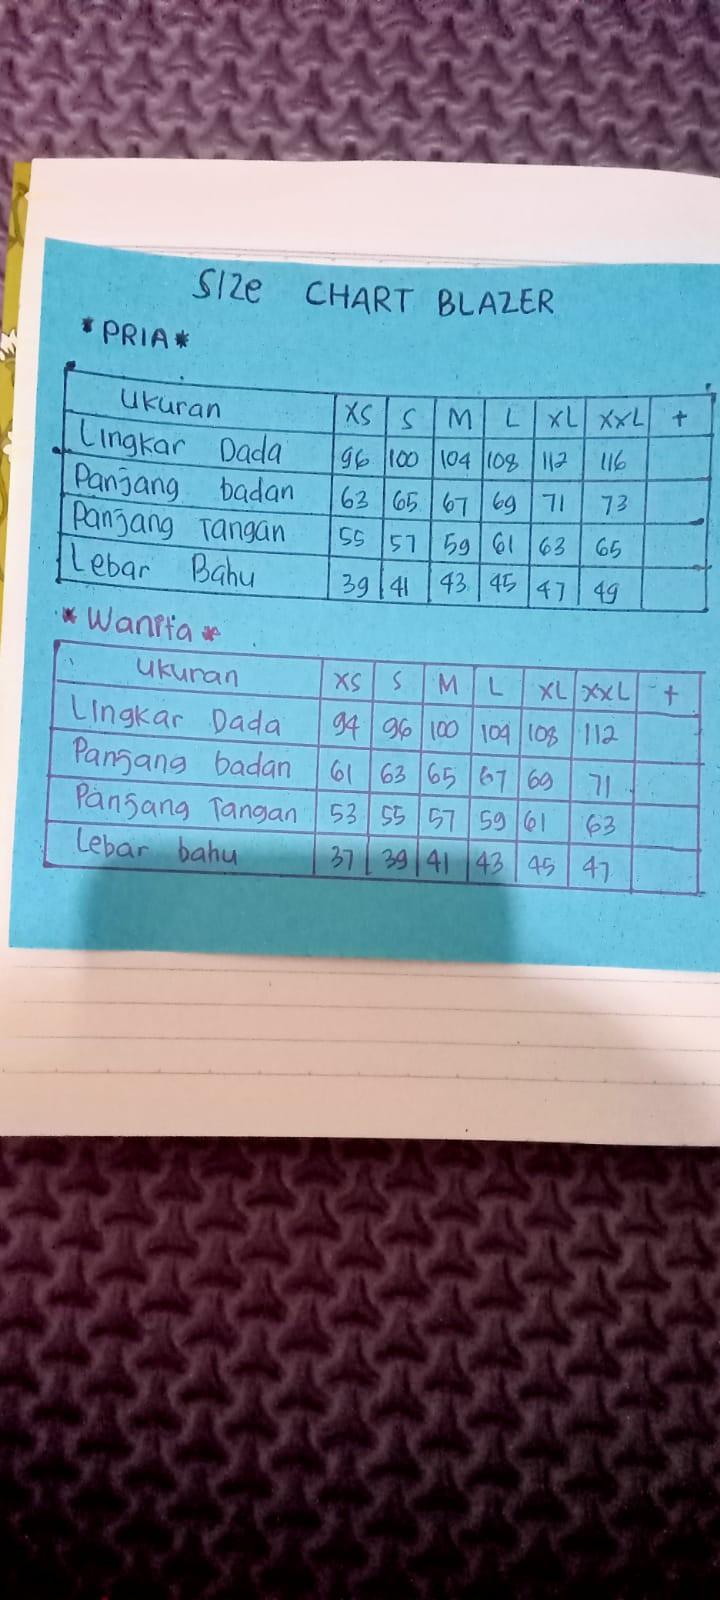 SIZe CHART BLAZER
*PRIA*
Ukuran XS S M L XL XXL +
Lingkar Dada 96 100 104 108 112 116
Panjang badan 63 65 67 69 71 73
Panjang Tangan 55 57 59 61 63 65
Lebar Bahu 39 41 43 45 47 49
* Wanita *
Ukuran XS S M L XL XXL +
Lingkar Dada 94 96 100 104 108 112
Panjang badan 61 63 65 67 69 71
Panjang Tangan 53 55 57 59 61 63
Lebar bahu 37 39 41 43 45 47